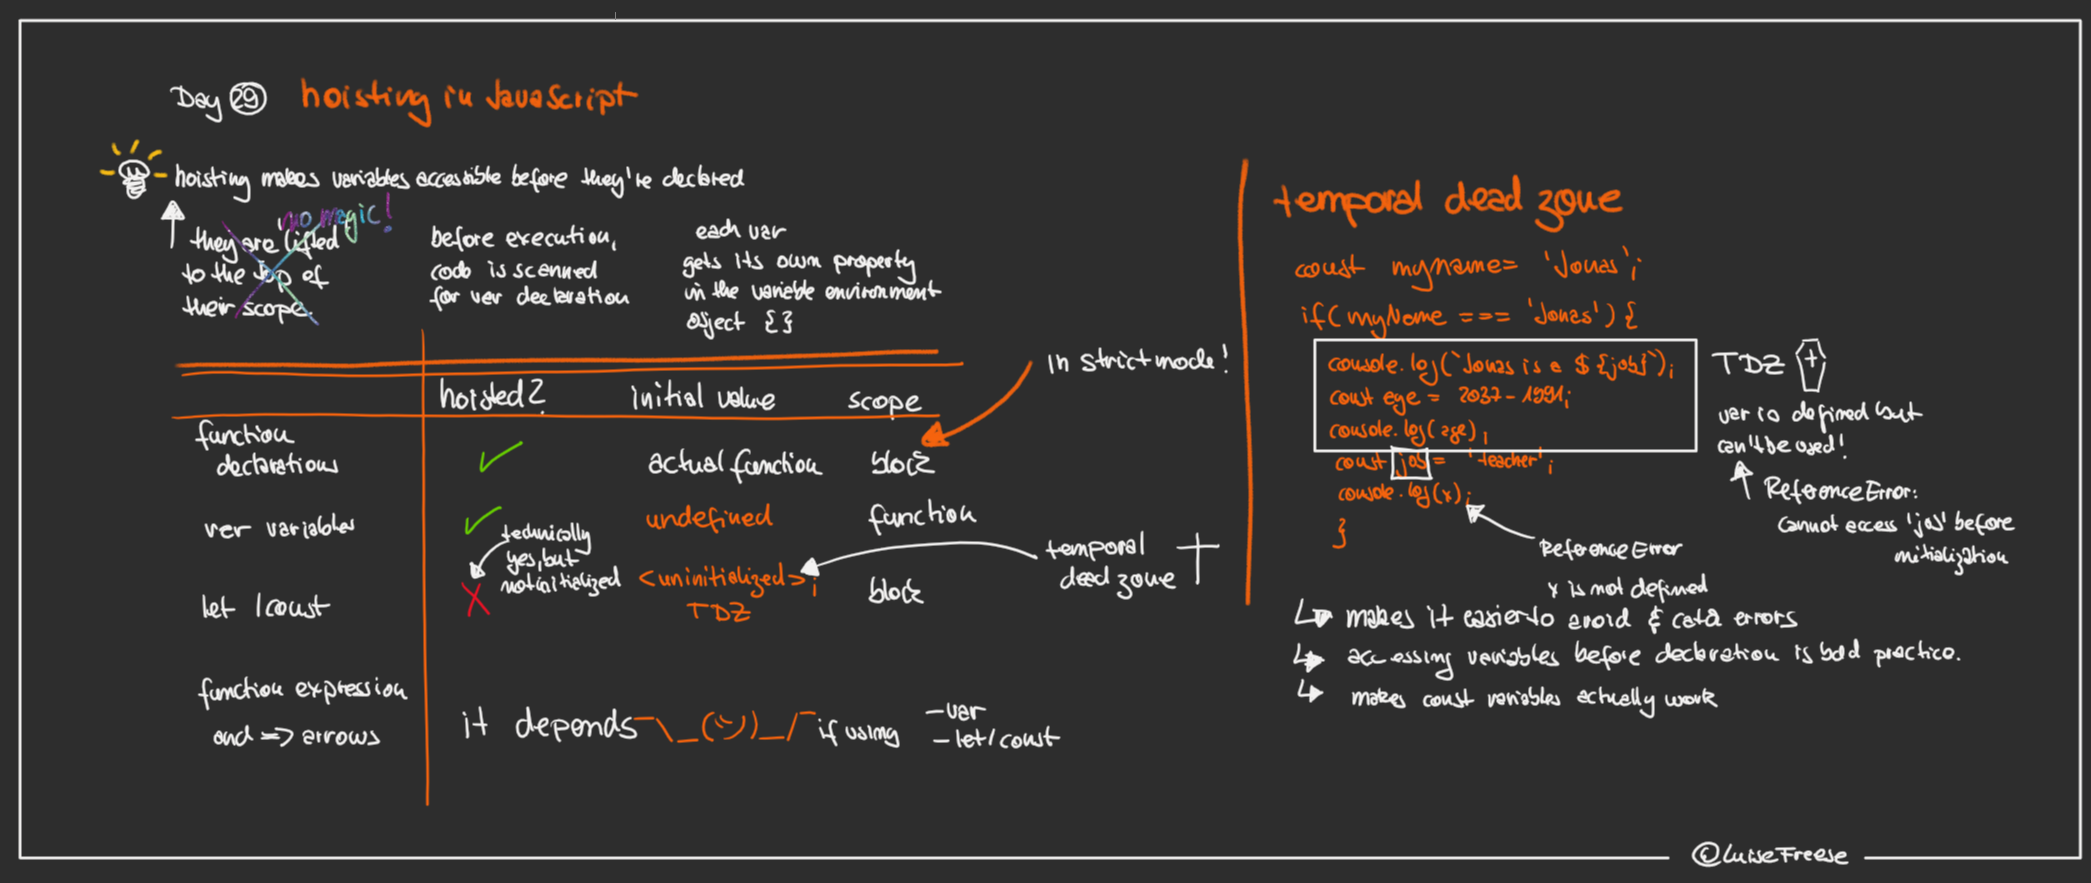 Day 29 hoisting in JavaScript
hoisting makes variables accessible before they're declared
no magic!
they are lifted
to the top of
their scope.
before execution,
code is scanned
for var declaration
each var
gets its own property
in the variable environment
object {}
in strict mode!
hoisted? initial value scope
function
declarations
actual function block
var variables
undefined function
technically
yes, but
not initialized
let / const
<uninitialized>;
TDZ
block
temporal
dead zone
function expression
and => arrows
it depends ¯\_(ツ)_/¯ if using
- var
- let / const
temporal dead zone
const myname = 'Jonas';
if (myName === 'Jonas') {
console.log(`Jonas is a ${job}`);
const age = 2037 - 1991;
console.log(age);
const job = 'teacher';
console.log(x);
}
TDZ
var is defined but
can't be used!
ReferenceError:
cannot access 'job' before
initialization
Reference Error
x is not defined
makes it easier to avoid & catch errors
accessing variables before declaration is bad practice.
makes const variables actually work
© LuiseFreese